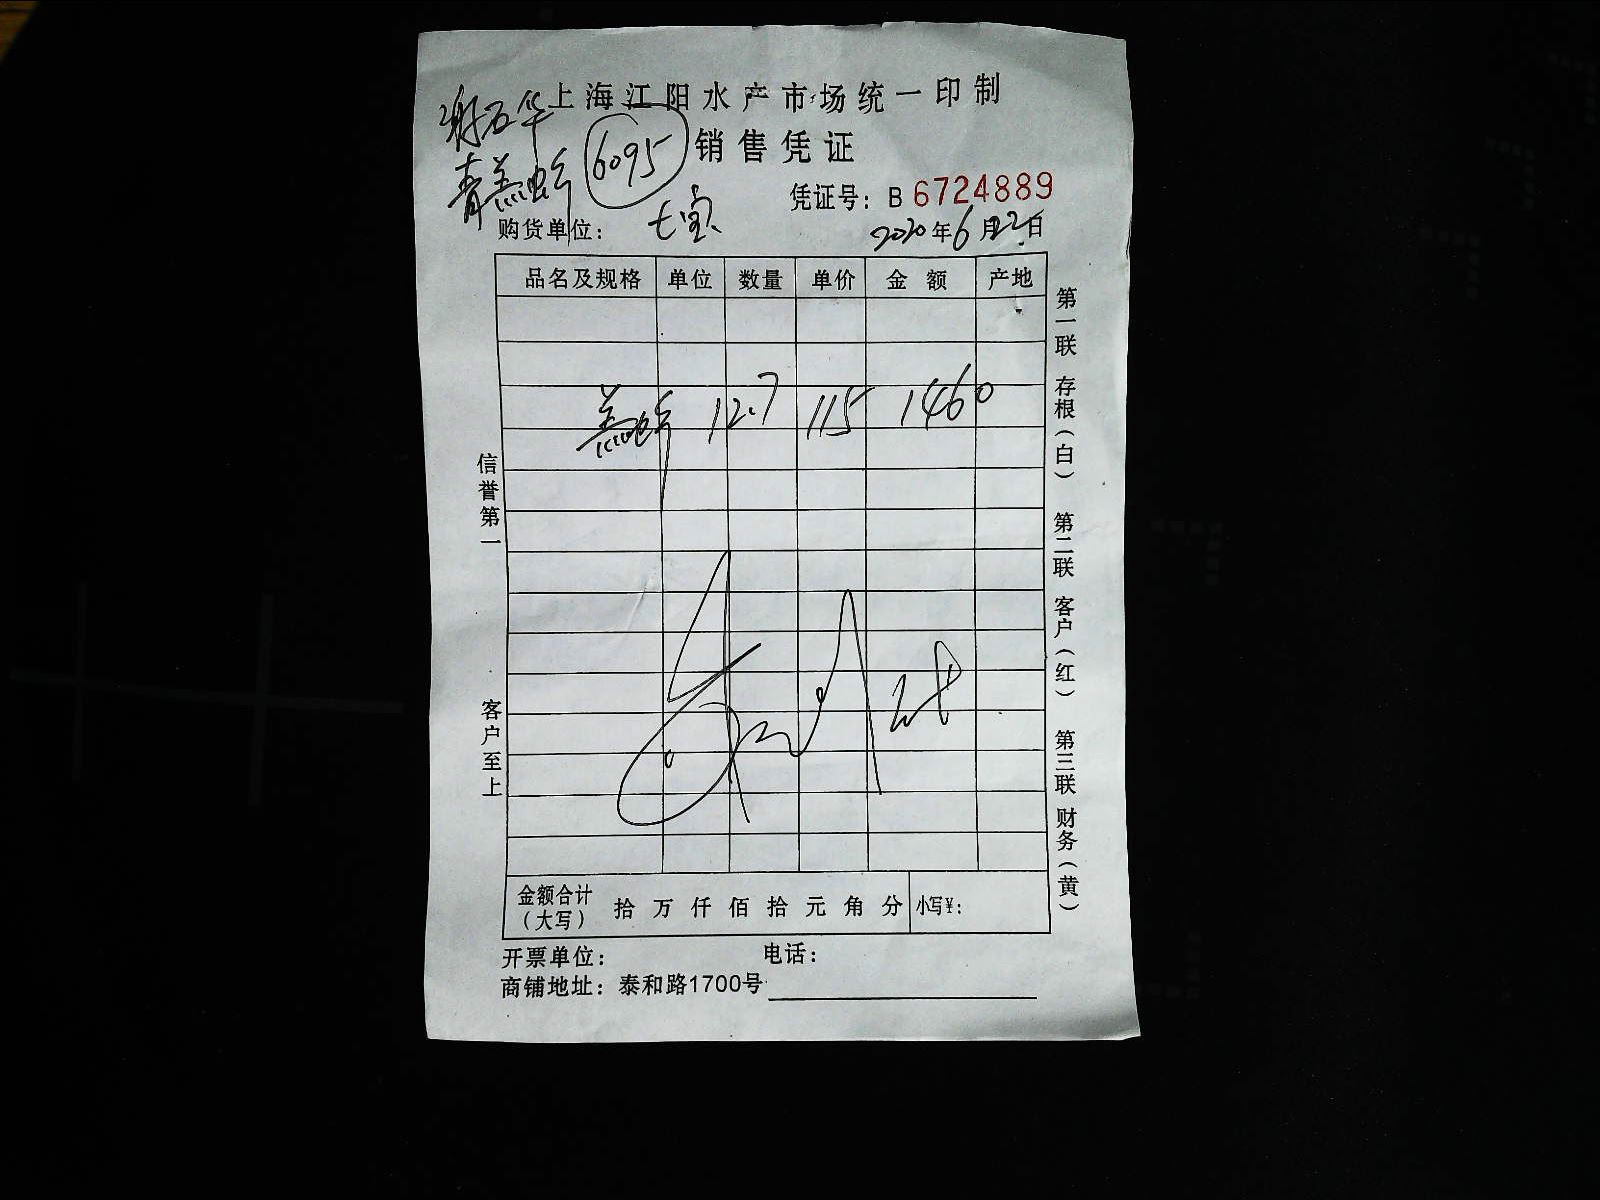 上海江阳水产市场统一印制
谢石华
销售凭证
6095
青羔蟹
凭证号：B 6724889
购货单位：七宝
2020年6月22日
品名及规格 单位 数量 单价 金额 产地
羔蟹 12.7 115 1460
金额合计（大写） 拾 万 仟 佰 拾 元 角 分 小写¥：
开票单位： 电话：
商铺地址：泰和路1700号
信誉第一 客户至上
第一联 存根（白） 第二联 客户（红） 第三联 财务（黄）